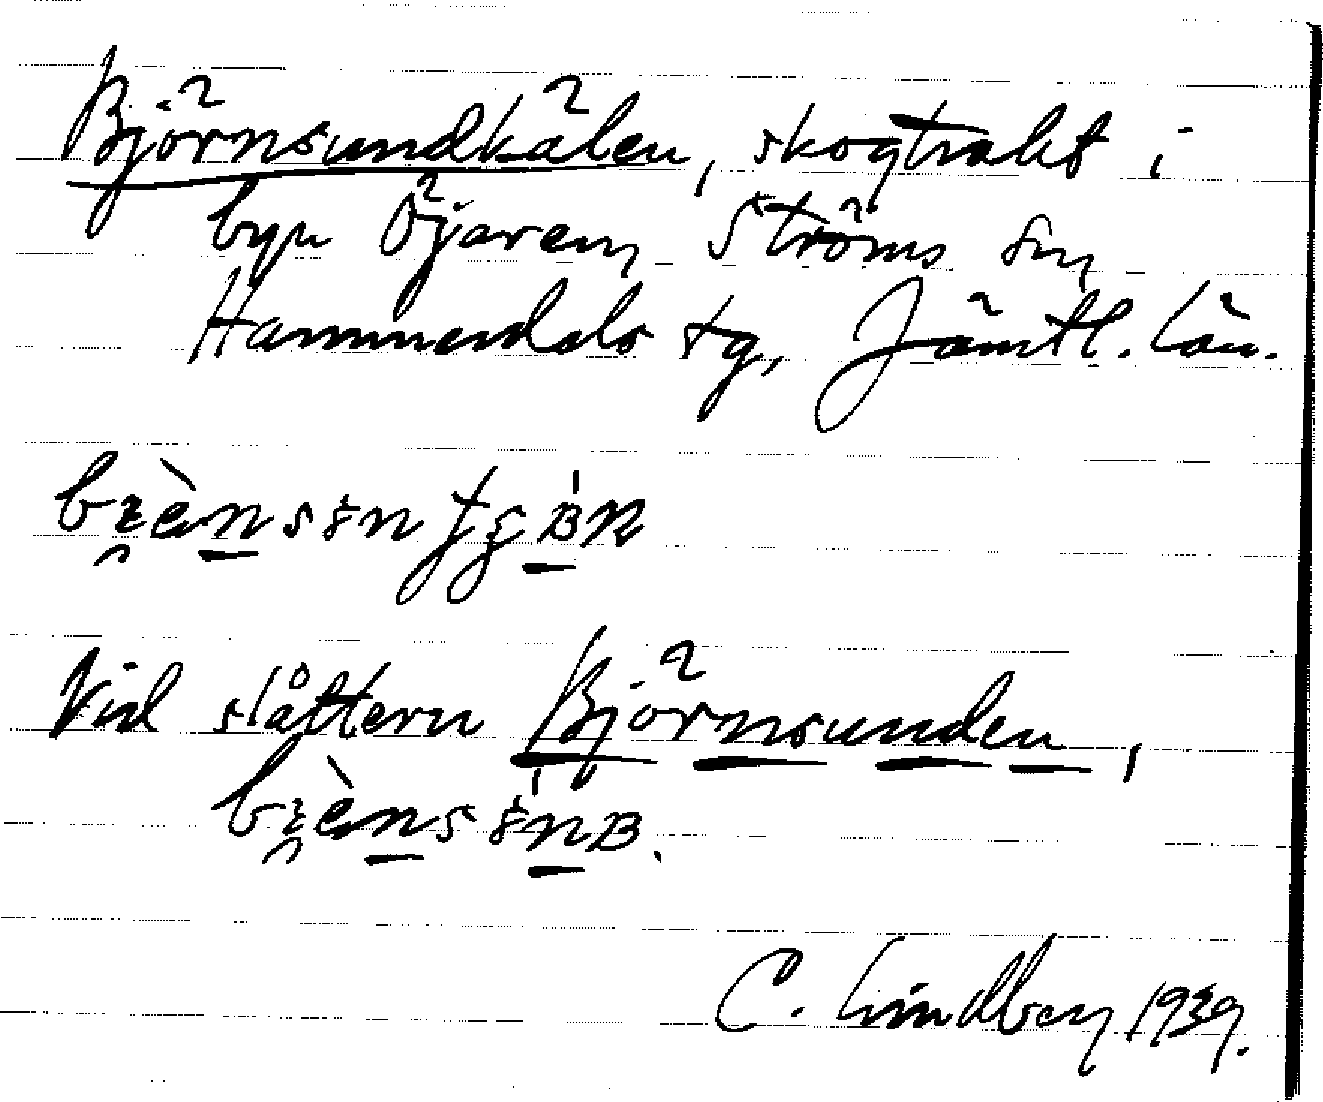 Björnsundkälen, skogtrakt i
byn Öjaren, Ströms sn,
Hammerdals tg, Jämtl. län.
Vid slåttern Björnsunden,
C. Lindberg 1939.